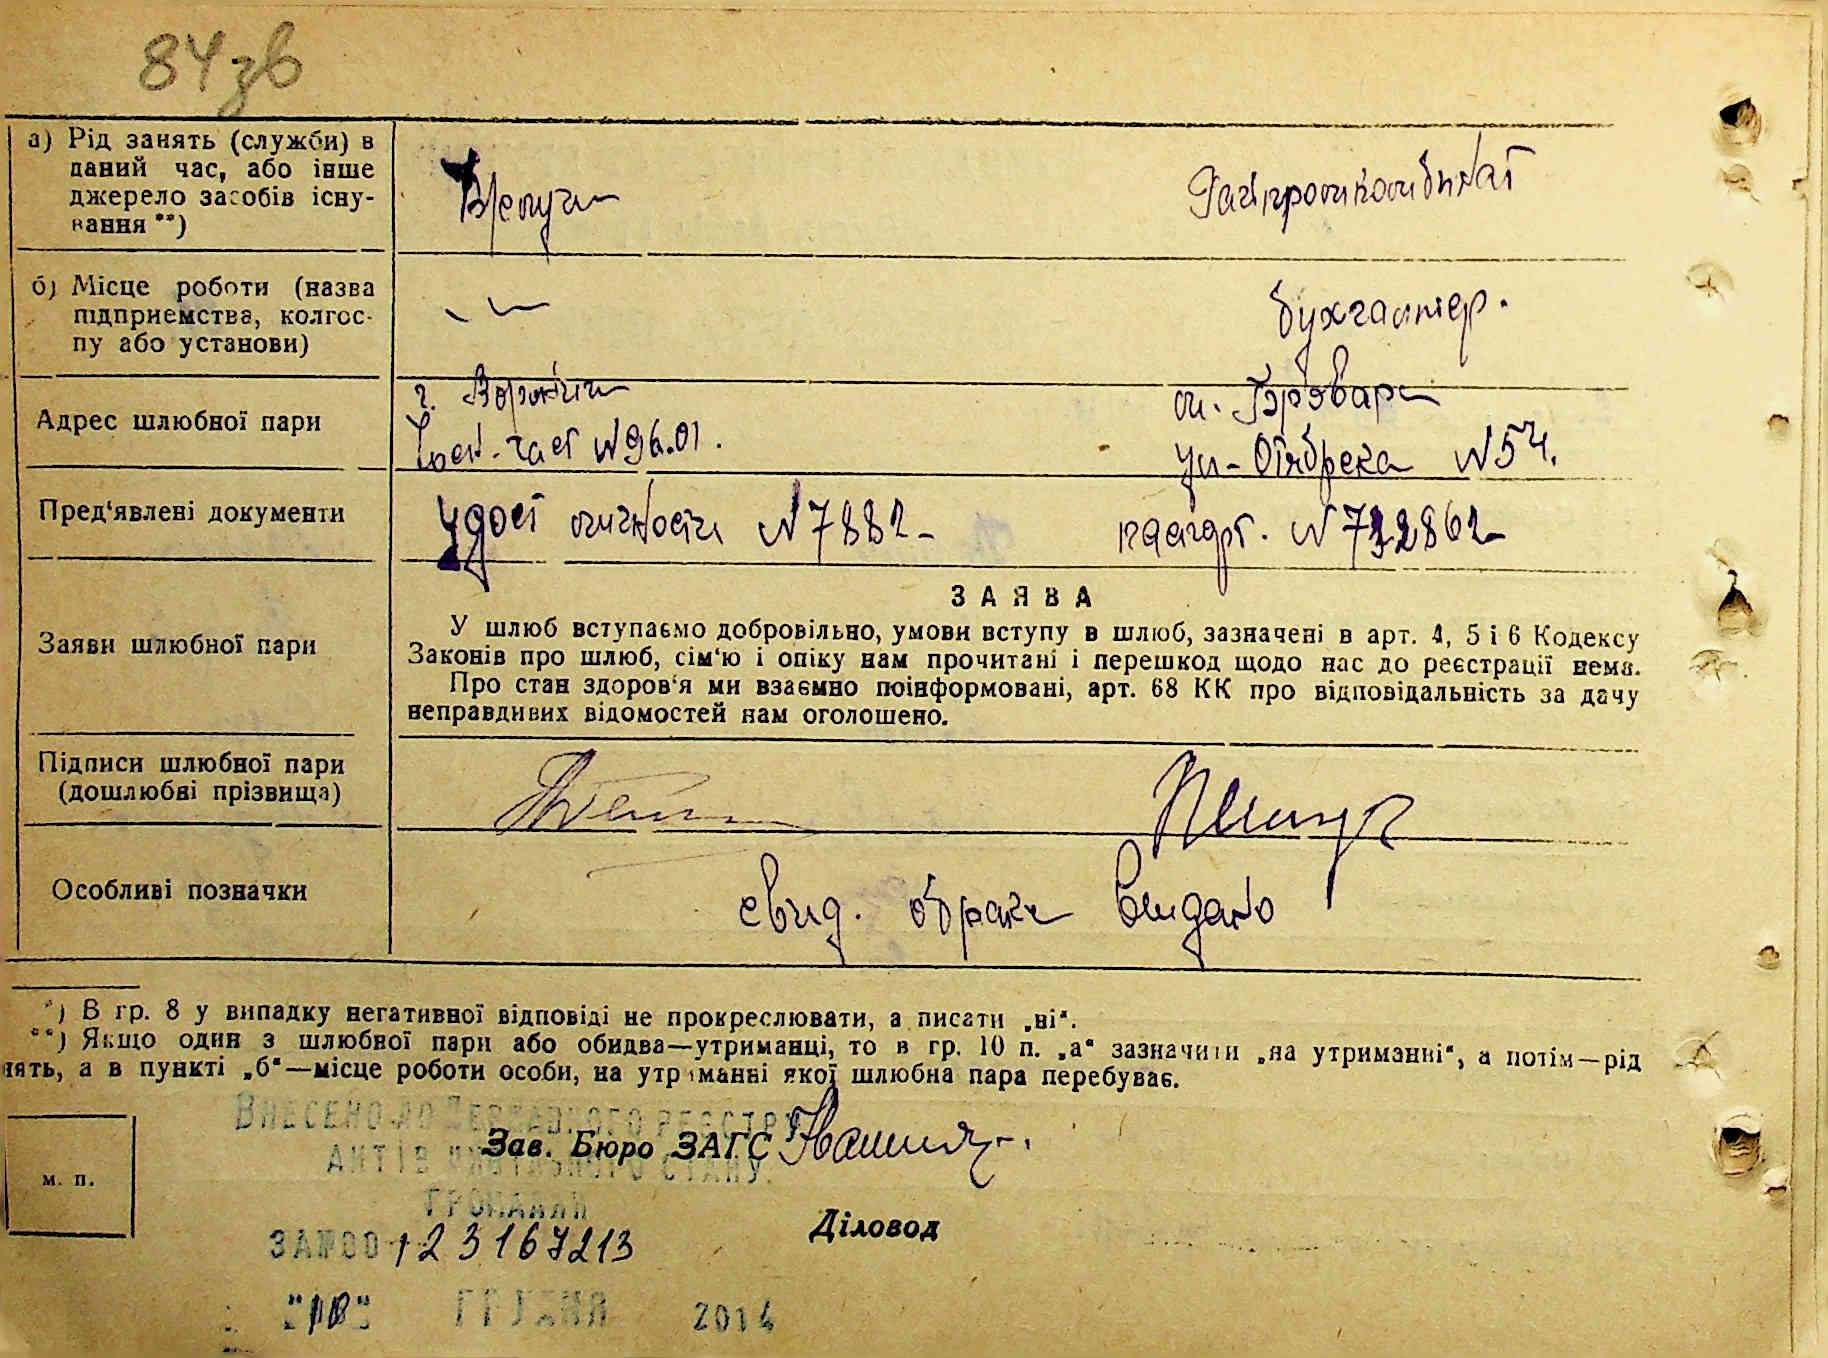 84зв
а) Рід занять (служби) в
даний час, або інше
джерело засобів існу-
вання **)
Райпромкомбинат
б) Місце роботи (назва
підприємства, колгос-
пу або установи)
бухгалтер.
Адрес шлюбної пари
г.
част №96.01.
ул- №54.
Пред'явлені документи
Удост личности №7882-
паспорт. №
Заяви шлюбної пари
ЗАЯВА
У шлюб вступаємо добровільно, умови вступу в шлюб, зазначені в арт. 4, 5 і 6 Кодексу
Законів про шлюб, сім'ю і опіку нам прочитані і перешкод щодо нас до реєстрації нема.
Про стан здоров'я ми взаємно поінформовані, арт. 68 КК про відповідальність за дачу
неправдивих відомостей нам оголошено.
Підписи шлюбної пари
(дошлюбні прізвища)
Особливі позначки
свид. о браке видано
*) В гр. 8 у випадку негативної відповіді не прокреслювати, а писати „ні“.
**) Якщо один з шлюбної пари або обидва—утриманці, то в гр. 10 п. „а“ зазначити „на утриманні“, а потім—рід
нять, а в пункті „б“—місце роботи особи, на утриманні якої шлюбна пара перебуває.
Внесено до Державного реєстру
Зав. Бюро ЗАГС
актів цивільного стану
громадян
м. п.
Діловод
за №00 123167213
"18" грудня 2014